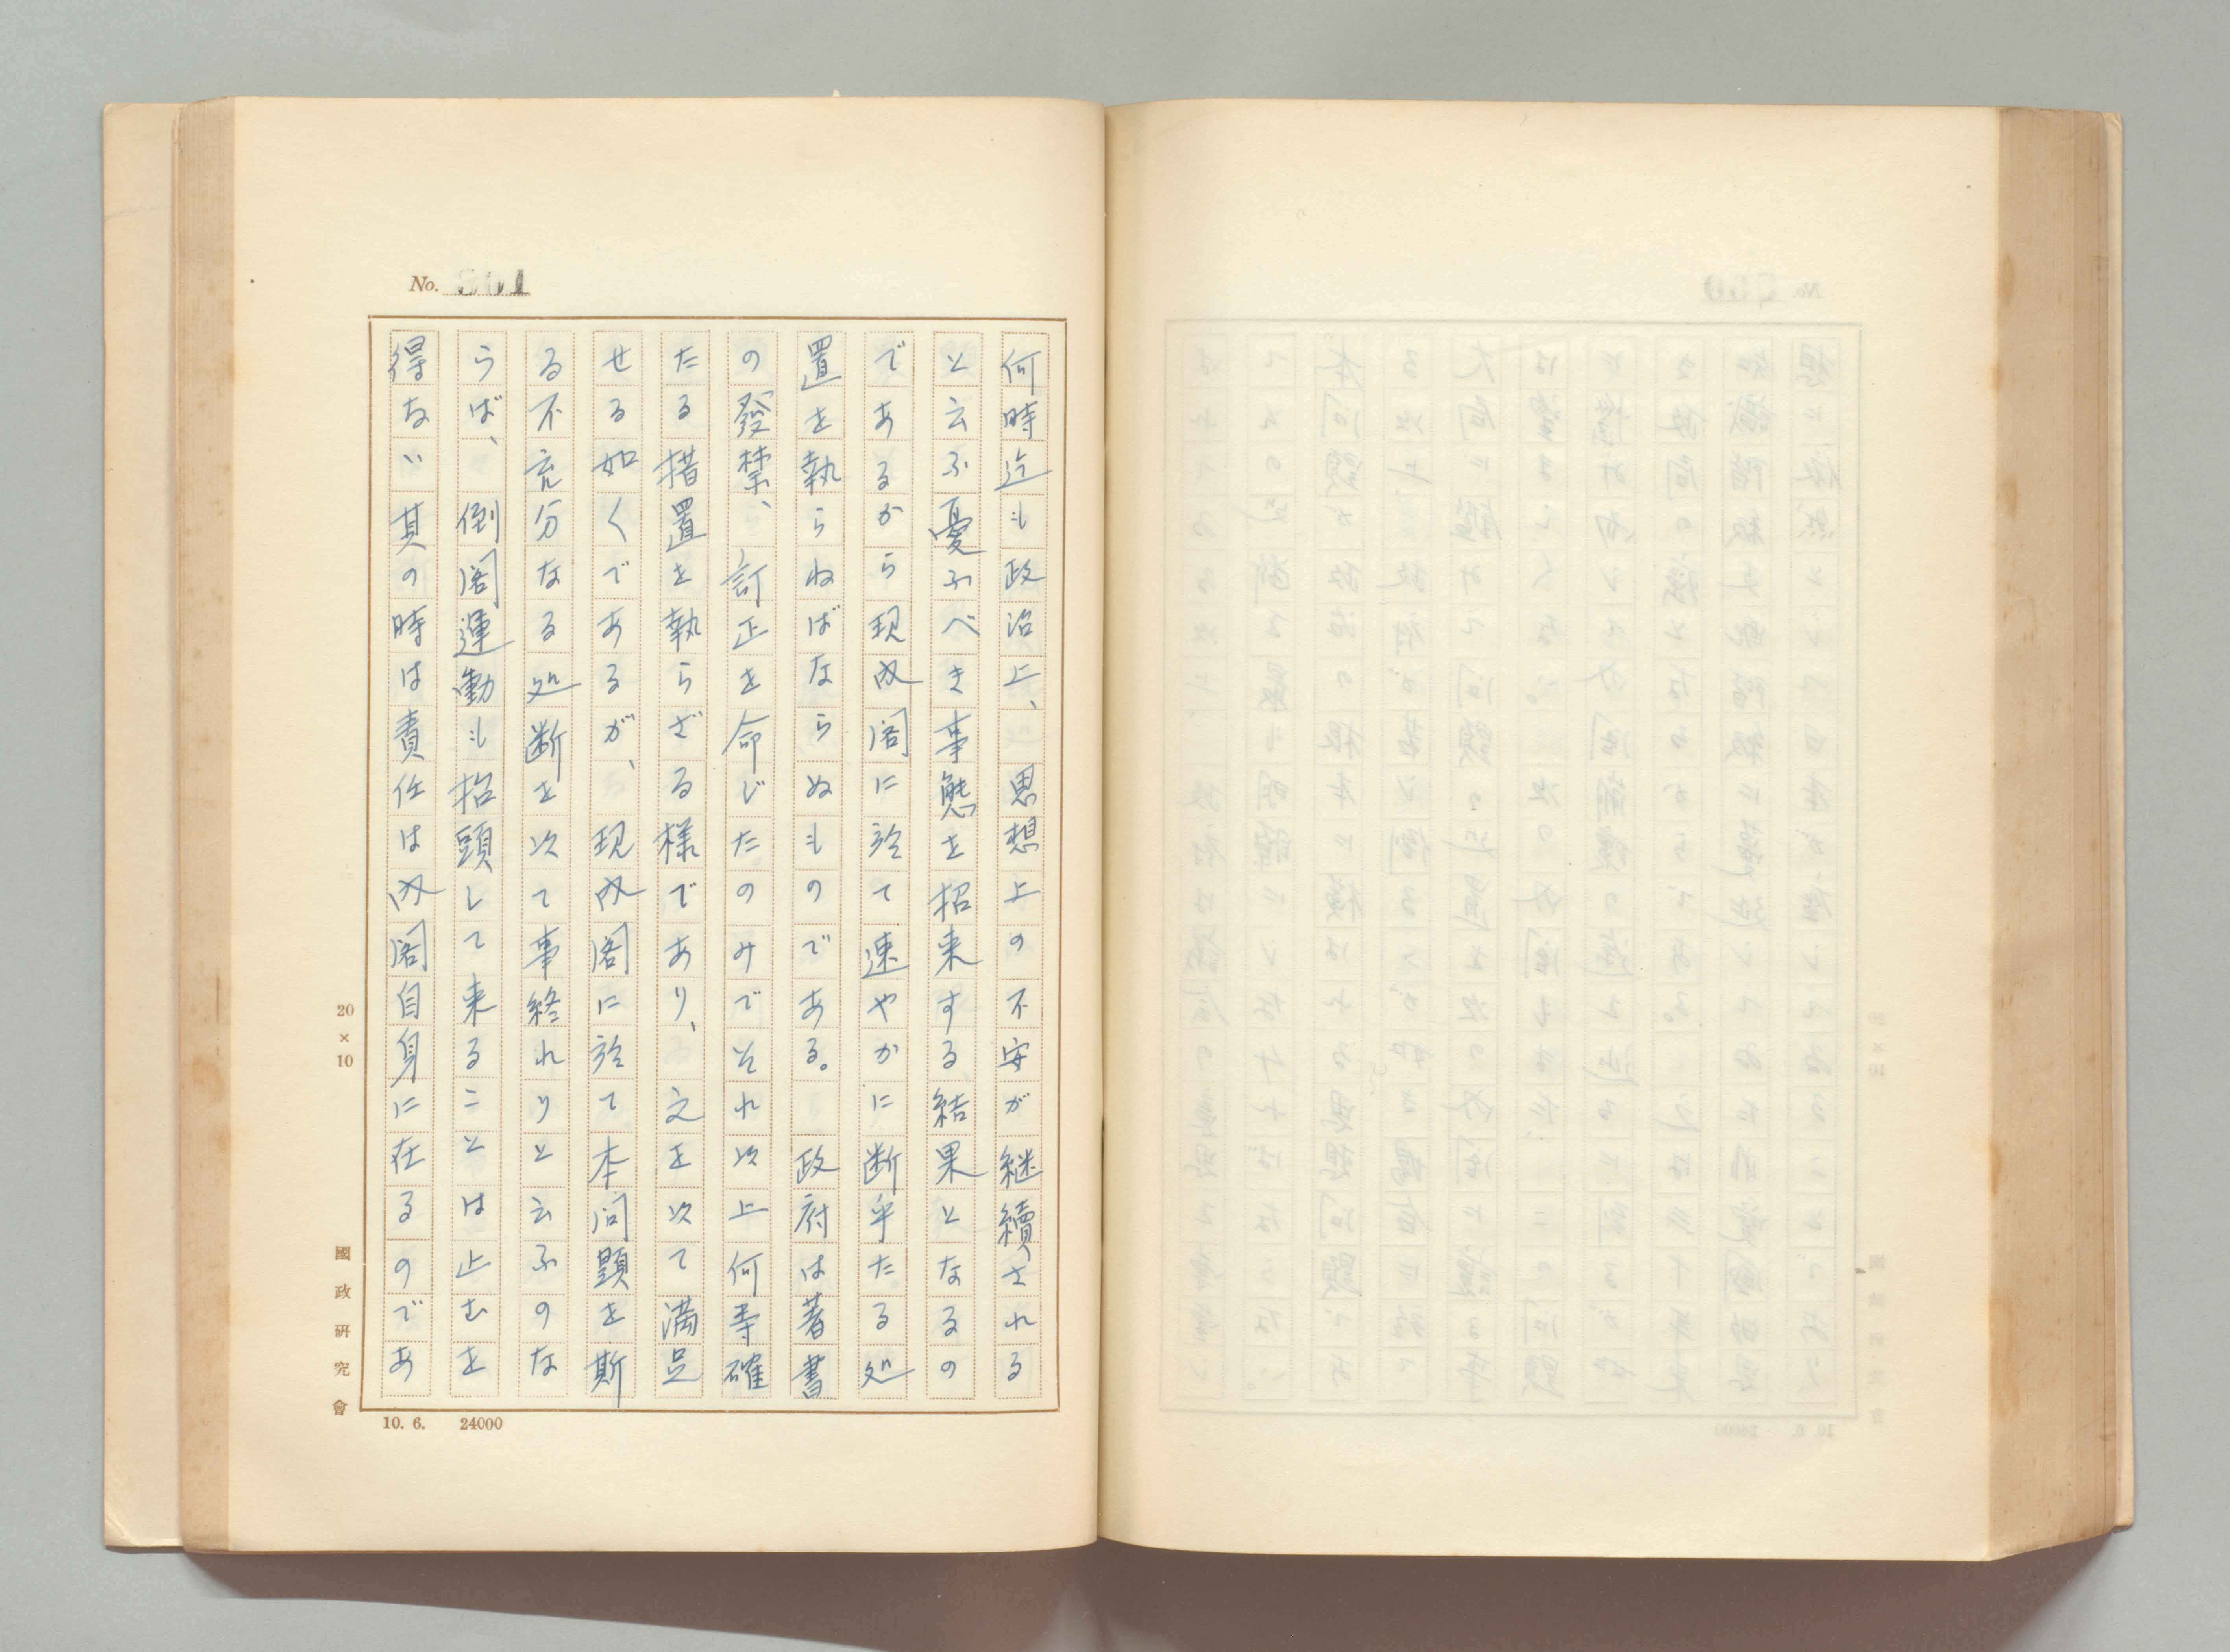 No. 861
何時迄も政治上、思想上の不安が継續される
と云ふ憂ふべき事態を招来する結果となるの
であるから現内閣に於て速やかに断乎たる処
置を執らねばならぬものである。政府は著書
の發禁、訂正を命じたのみでそれ以上何等確
たる措置を執らざる様であり、之を以て満足
せる如くであるが、現内閣に於て本问題を斯
る不充分なる処断を以て事終れりと云ふのな
らば、倒閣運動も抬頭して来ることは止むを
得ない其の時は責任は内閣自身に在るのであ
20×10
國政研究會
10. 6. 24000